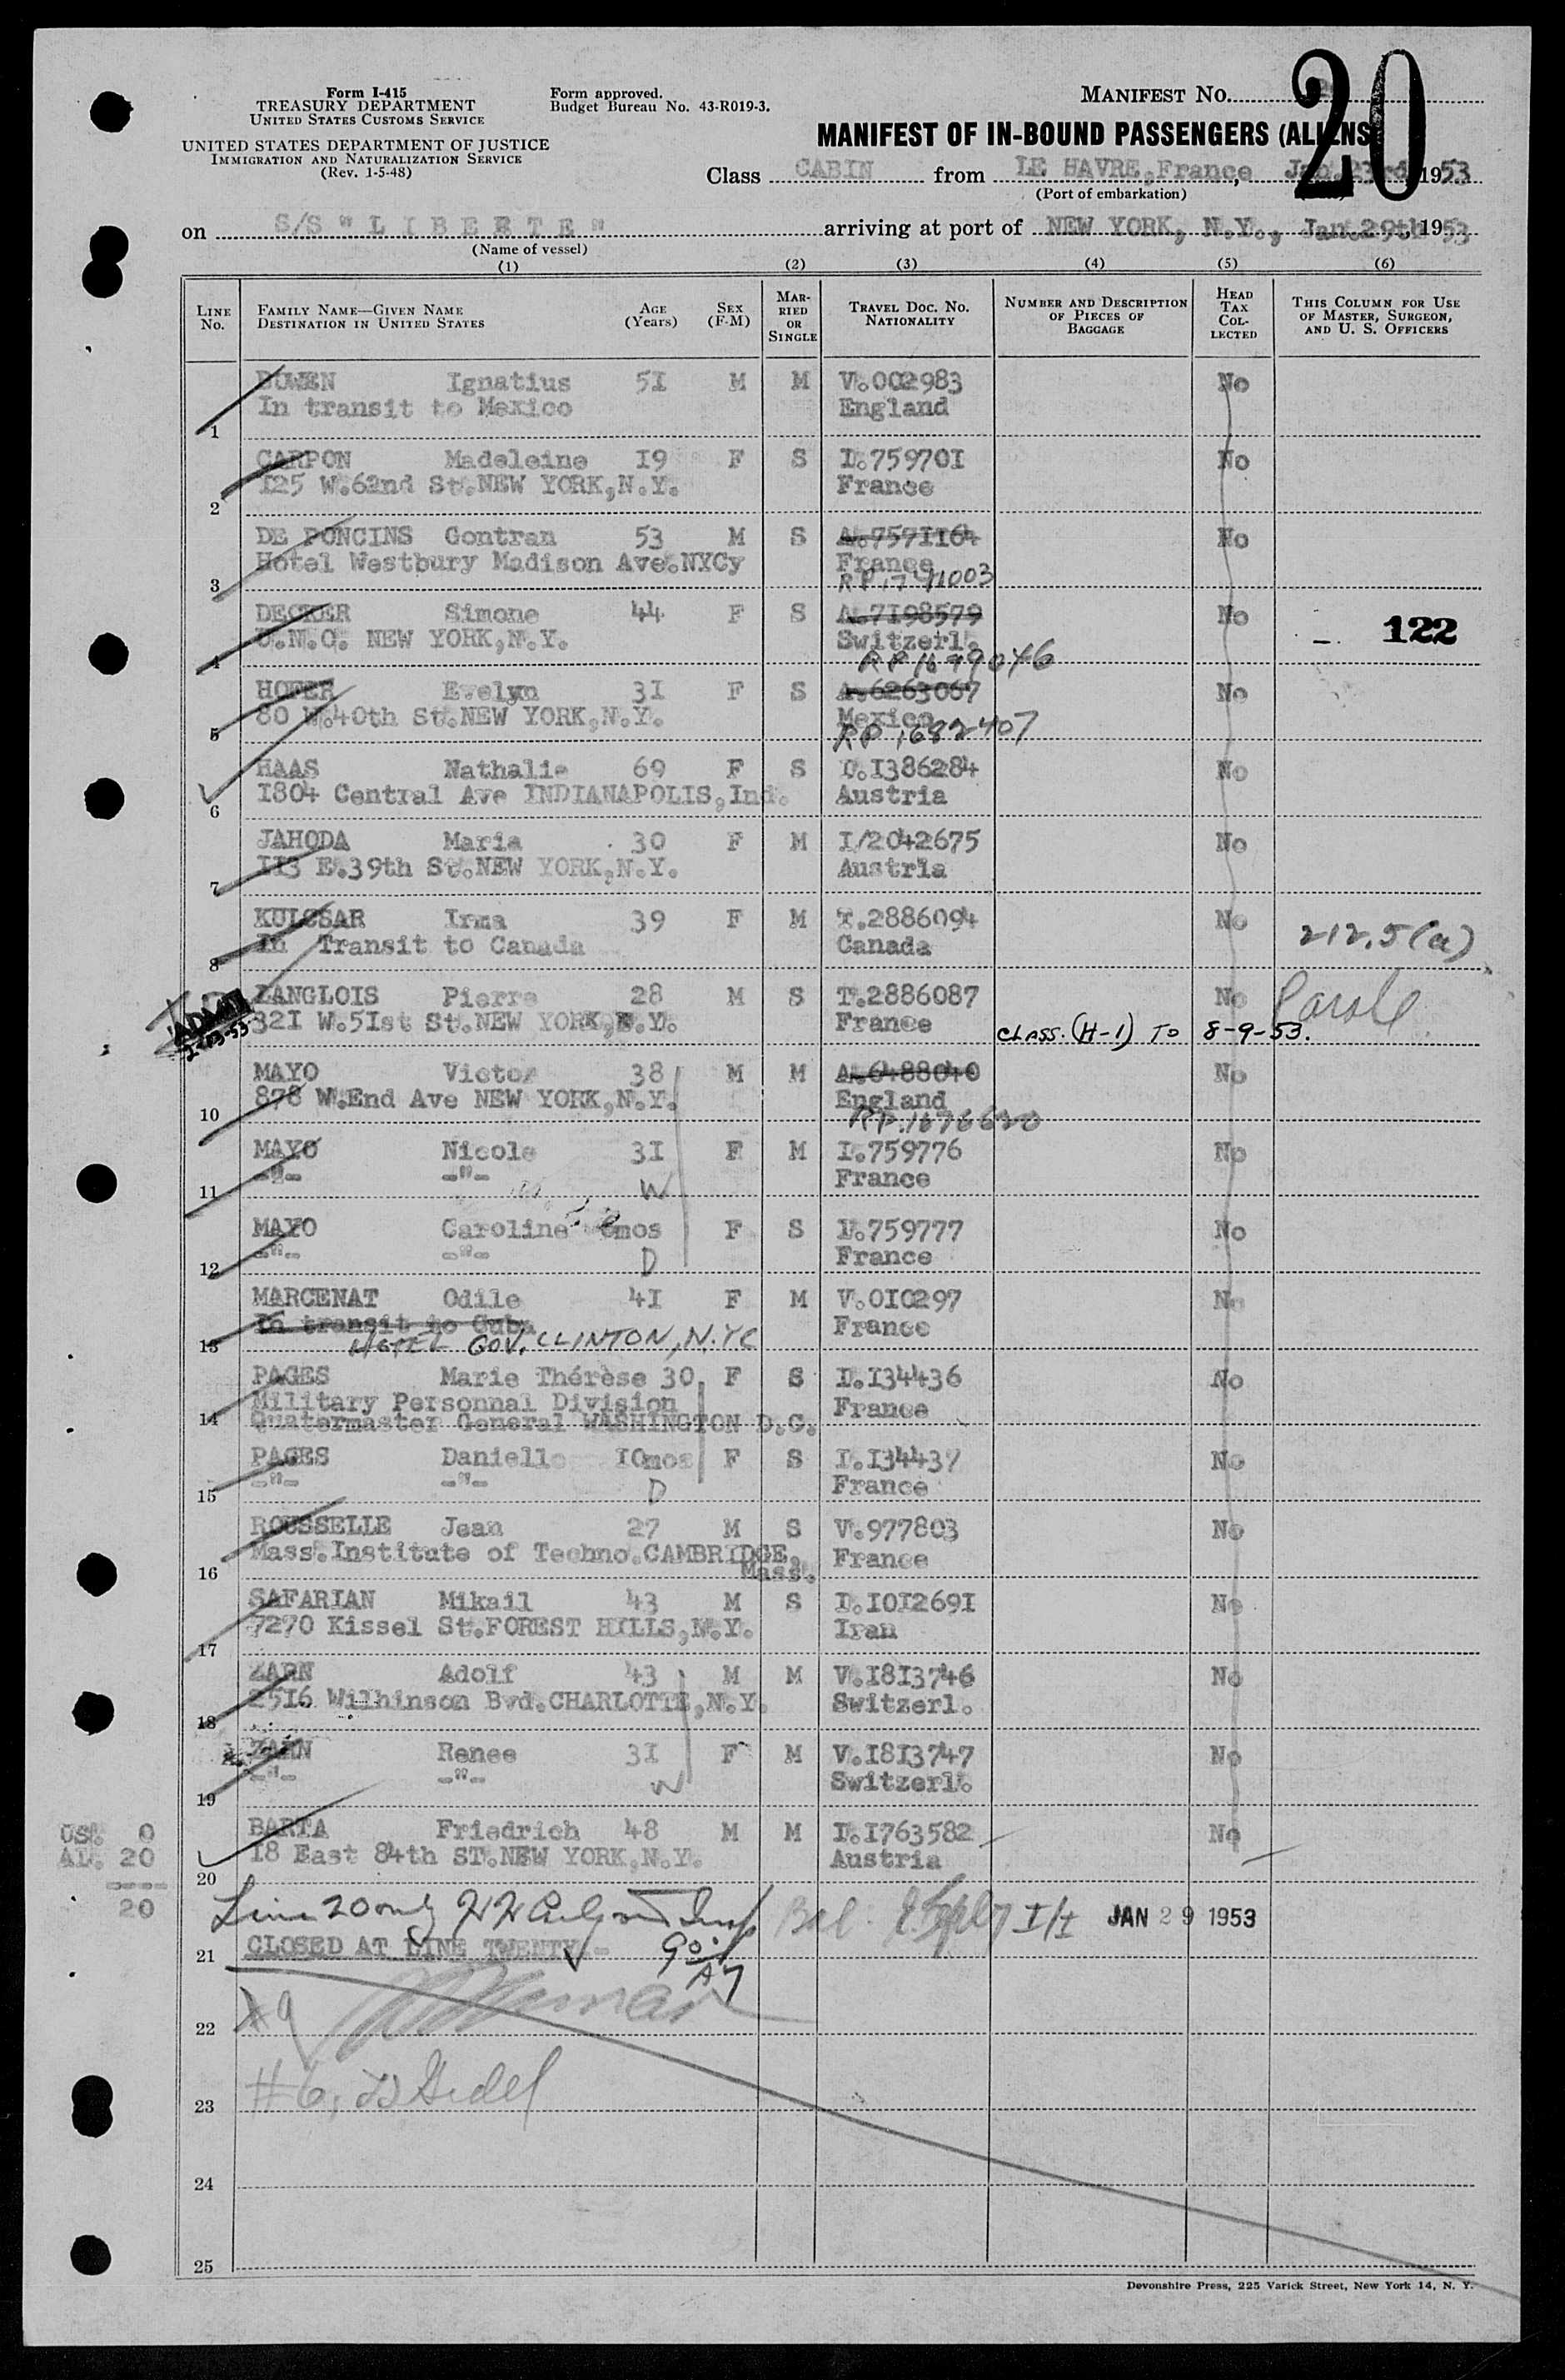 20
Form I-415
TREASURY DEPARTMENT
UNITED STATES CUSTOMS SERVICE
UNITED STATES DEPARTMENT OF JUSTICE
IMMIGRATION AND NATURALIZATION SERVICE
(Rev. 1-5-48)
Form approved.
Budget Bureau No. 43-R019-3.
MANIFEST NO.
MANIFEST OF IN-BOUND PASSENGERS (ALIENS)
Class CABIN from LE HAVRE, France, Jan. 23rd 1953
(Port of embarkation)
on S/S "LIBERTE" arriving at port of NEW YORK, N.Y., Jan. 29th 1953
(Name of vessel)
(1) (2) (3) (4) (5) (6)
LINE No. FAMILY NAME—GIVEN NAME DESTINATION IN UNITED STATES AGE (Years) SEX (F-M) MARRIED OR SINGLE TRAVEL DOC. NO. NATIONALITY NUMBER AND DESCRIPTION OF PIECES OF BAGGAGE HEAD TAX COLLECTED THIS COLUMN FOR USE OF MASTER, SURGEON, AND U. S. OFFICERS
BOWEN Ignatius 5I M M V.002983 No
In transit to Mexico England
1
CARPON Madeleine I9 F S I.75970I No
I25 W.62nd St.NEW YORK,N.Y. France
2
DE PONCINS Gontran 53 M S A.757II64 No
Hotel Westbury Madison Ave.NYCy France
3 RP 1741003
DECKER Simone 44 F S A.7I98579 No 122
U.N.O. NEW YORK,N.Y. Switzerl.
4 RP 1699046
HOFER Evelyn 3I F S A.6263067 No
80 W.40th St.NEW YORK,N.Y. Mexico
5 RP 1682407
HAAS Nathalie 69 F S I.I386284 No
I804 Central Ave INDIANAPOLIS,Ind. Austria
6
JAHODA Maria 30 F M I/2042675 No
II3 E.39th St.NEW YORK,N.Y. Austria
7
KULCSAR Irma 39 F M T.2886094 No 212.5(a)
In Transit to Canada Canada
8
LANGLOIS Pierre 28 M S T.2886087 No Parole
32I W.5Ist St.NEW YORK,N.Y. France CLASS. (H-1) TO 8-9-53.
MAYO Victor 38 M M A.6488040 No
878 W.End Ave NEW YORK,N.Y. England
10 RP.1676620
MAYO Nicole 3I F M I.759776 No
-"- -"- France
11 W
MAYO Caroline 6mos F S I.759777 No
-"- -"- France
12 D
MARCENAT Odile 4I F M V.0I0297 No
In transit to Cuba France
13 HOTEL GOV. CLINTON, N.YC
PAGES Marie Thérèse 30 F S I.I34436 No
Military Personnal Division France
14 Quatermaster General WASHINGTON D.C.
PAGES Danielle I0mos F S I.I34437 No
-"- -"- France
15 D
ROUSSELLE Jean 27 M S V.977803 No
Mass.Institute of Techno.CAMBRIDGE, France
16 Mass.
SAFARIAN Mikail 43 M S I.I0I269I No
7270 Kissel St.FOREST HILLS,N.Y. Iran
17
ZARN Adolf 43 M M V.I8I3746 No
25I6 Wilhinson Bvd.CHARLOTTE,N.Y. Switzerl.
18
ZARN Renee 3I F M V.I8I3747 No
-"- -"- Switzerl.
19 W
BARTA Friedrich 48 M M I.I763582 No
I8 East 84th ST.NEW YORK,N.Y. Austria
20
US. 0
AL. 20
20
Line 20 only JAN 29 1953
21 CLOSED AT LINE TWENTY
22 #9
23 #6,
24
25
Devonshire Press, 225 Varick Street, New York 14, N. Y.